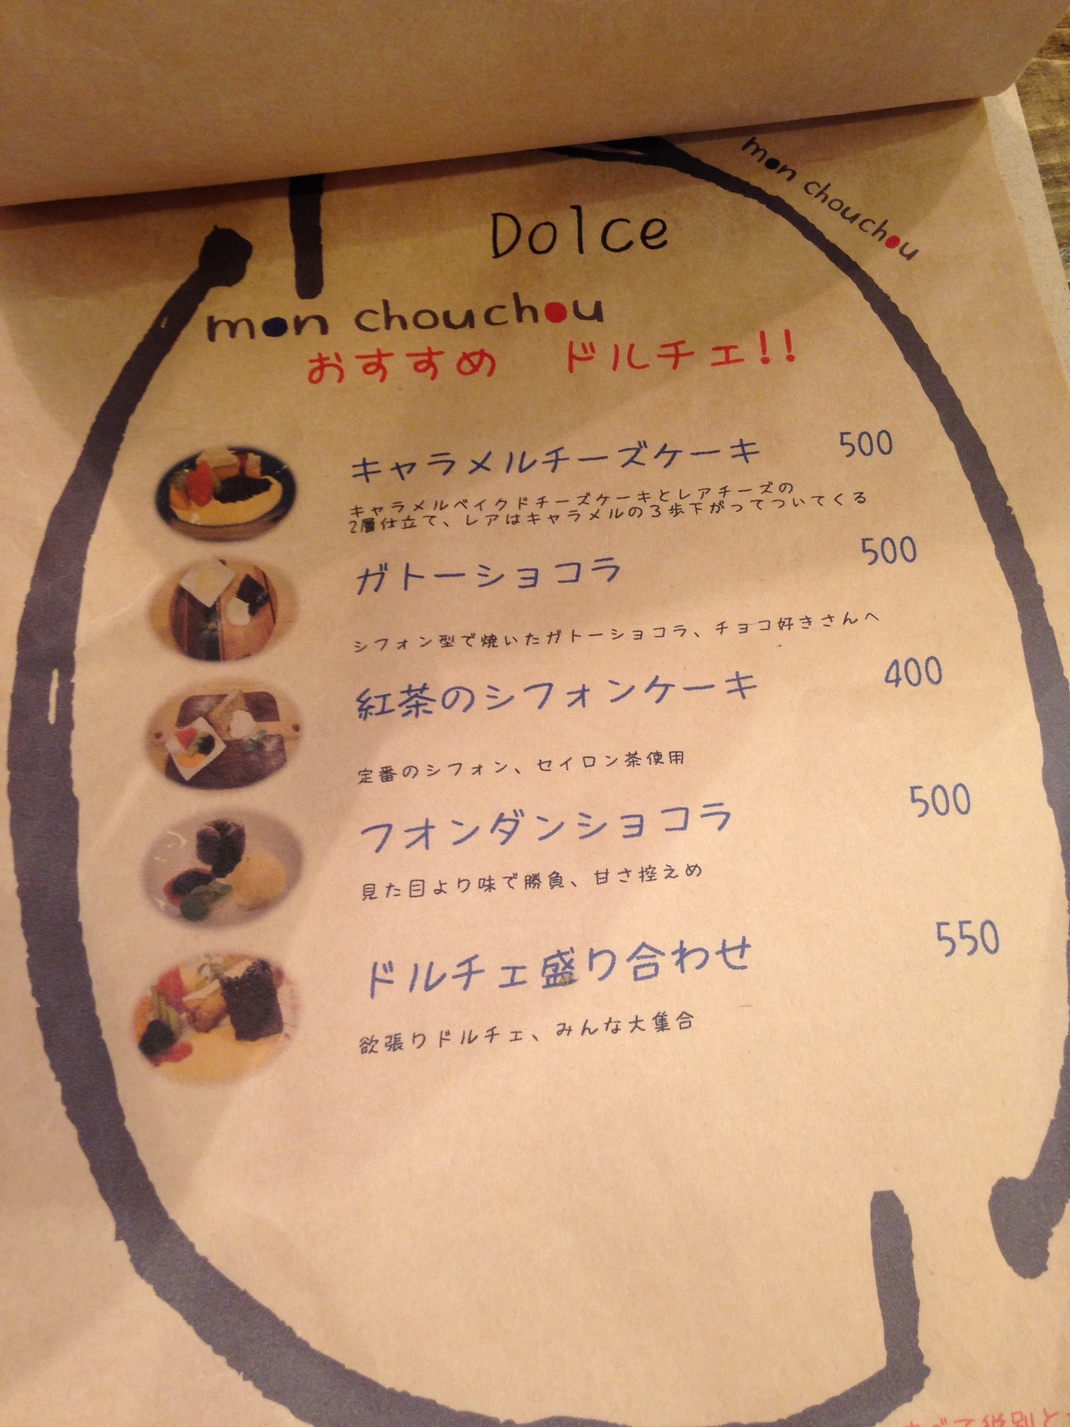 mon chouchou
Dolce
mon chouchou
おすすめ ドルチェ!!
キャラメルチーズケーキ 500
キャラメルベイクドチーズケーキとレアチーズの
2層仕立て、レアはキャラメルの3歩下がってついてくる
ガトーショコラ 500
シフォン型で焼いたガトーショコラ、チョコ好きさんへ
紅茶のシフォンケーキ 400
定番のシフォン、セイロン茶使用
フォンダンショコラ 500
見た目より味で勝負、甘さ控えめ
ドルチェ盛り合わせ 550
欲張りドルチェ、みんな大集合